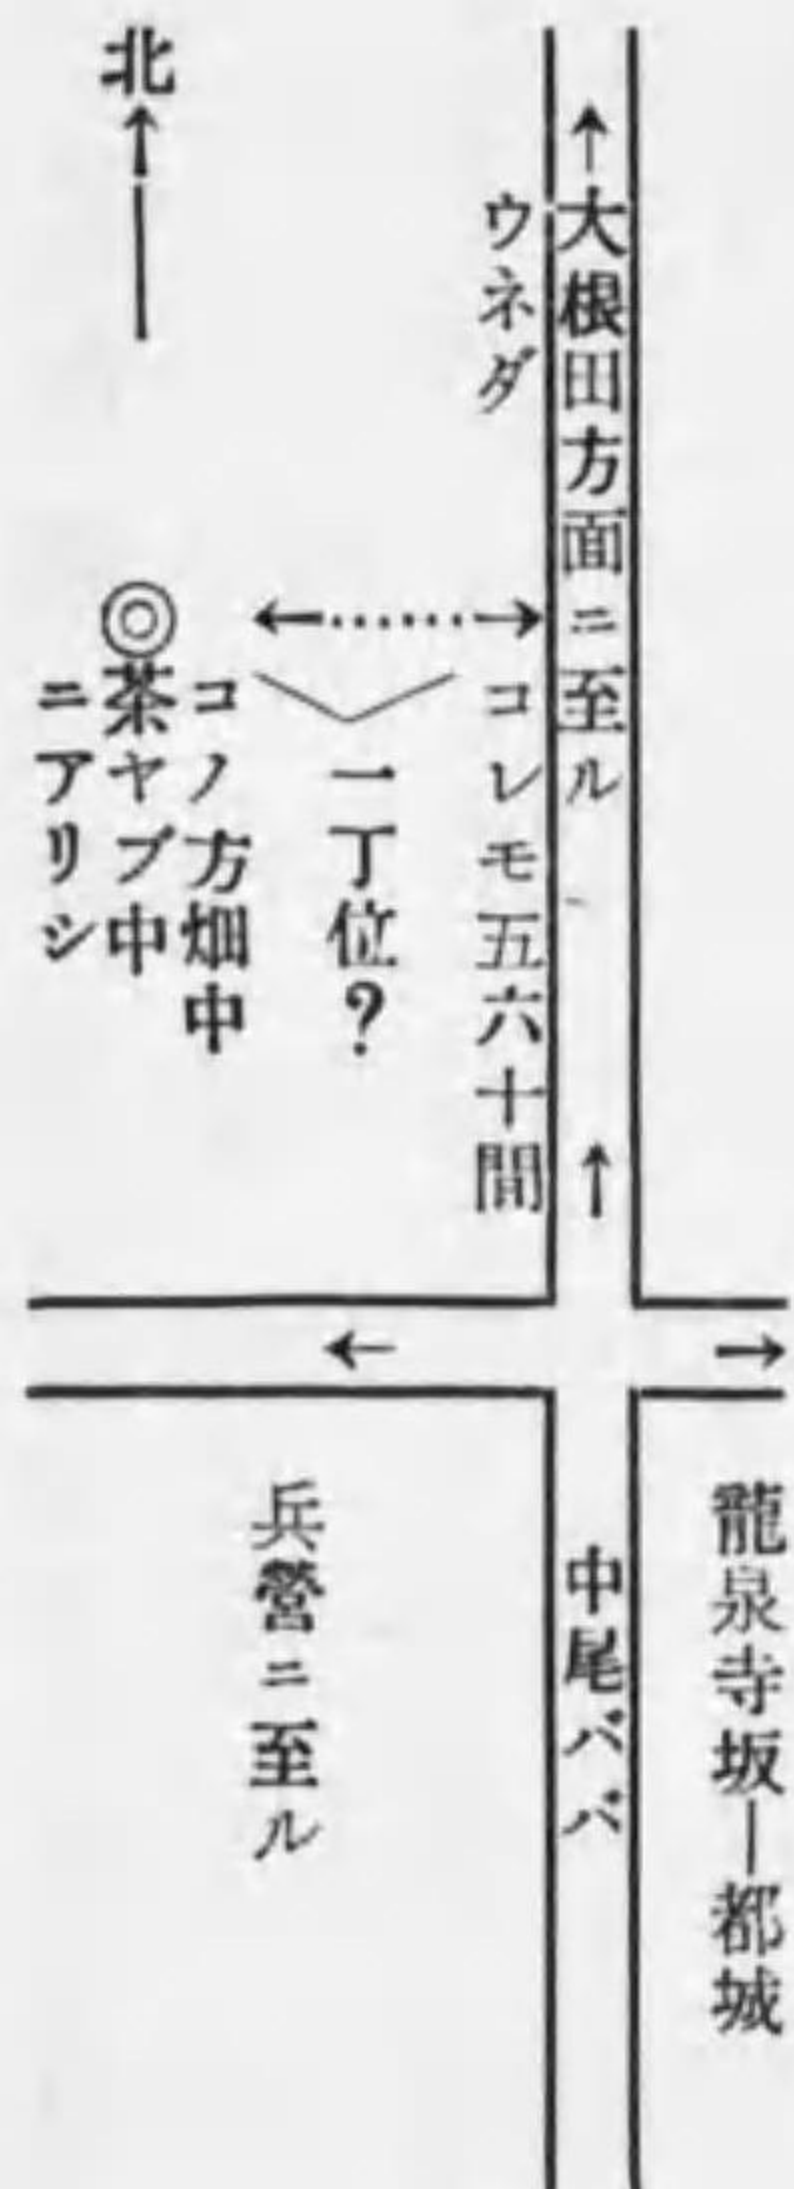 北
大根田方面ニ至ル
ウネダ
コレモ五六十間
一丁位?
コノ方畑中
茶ヤブ中
ニアリシ
龍泉寺坂―都城
中尾ババ
兵營ニ至ル